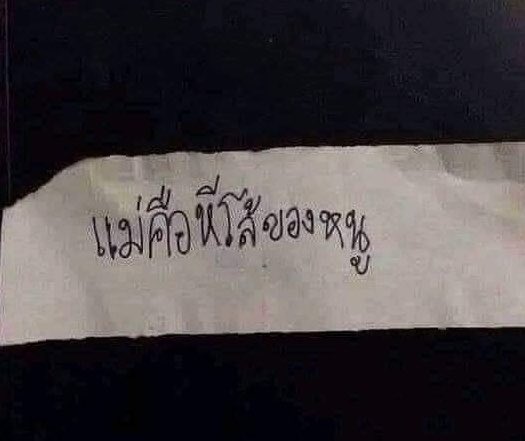 แม่คือหีโส้ของหนู